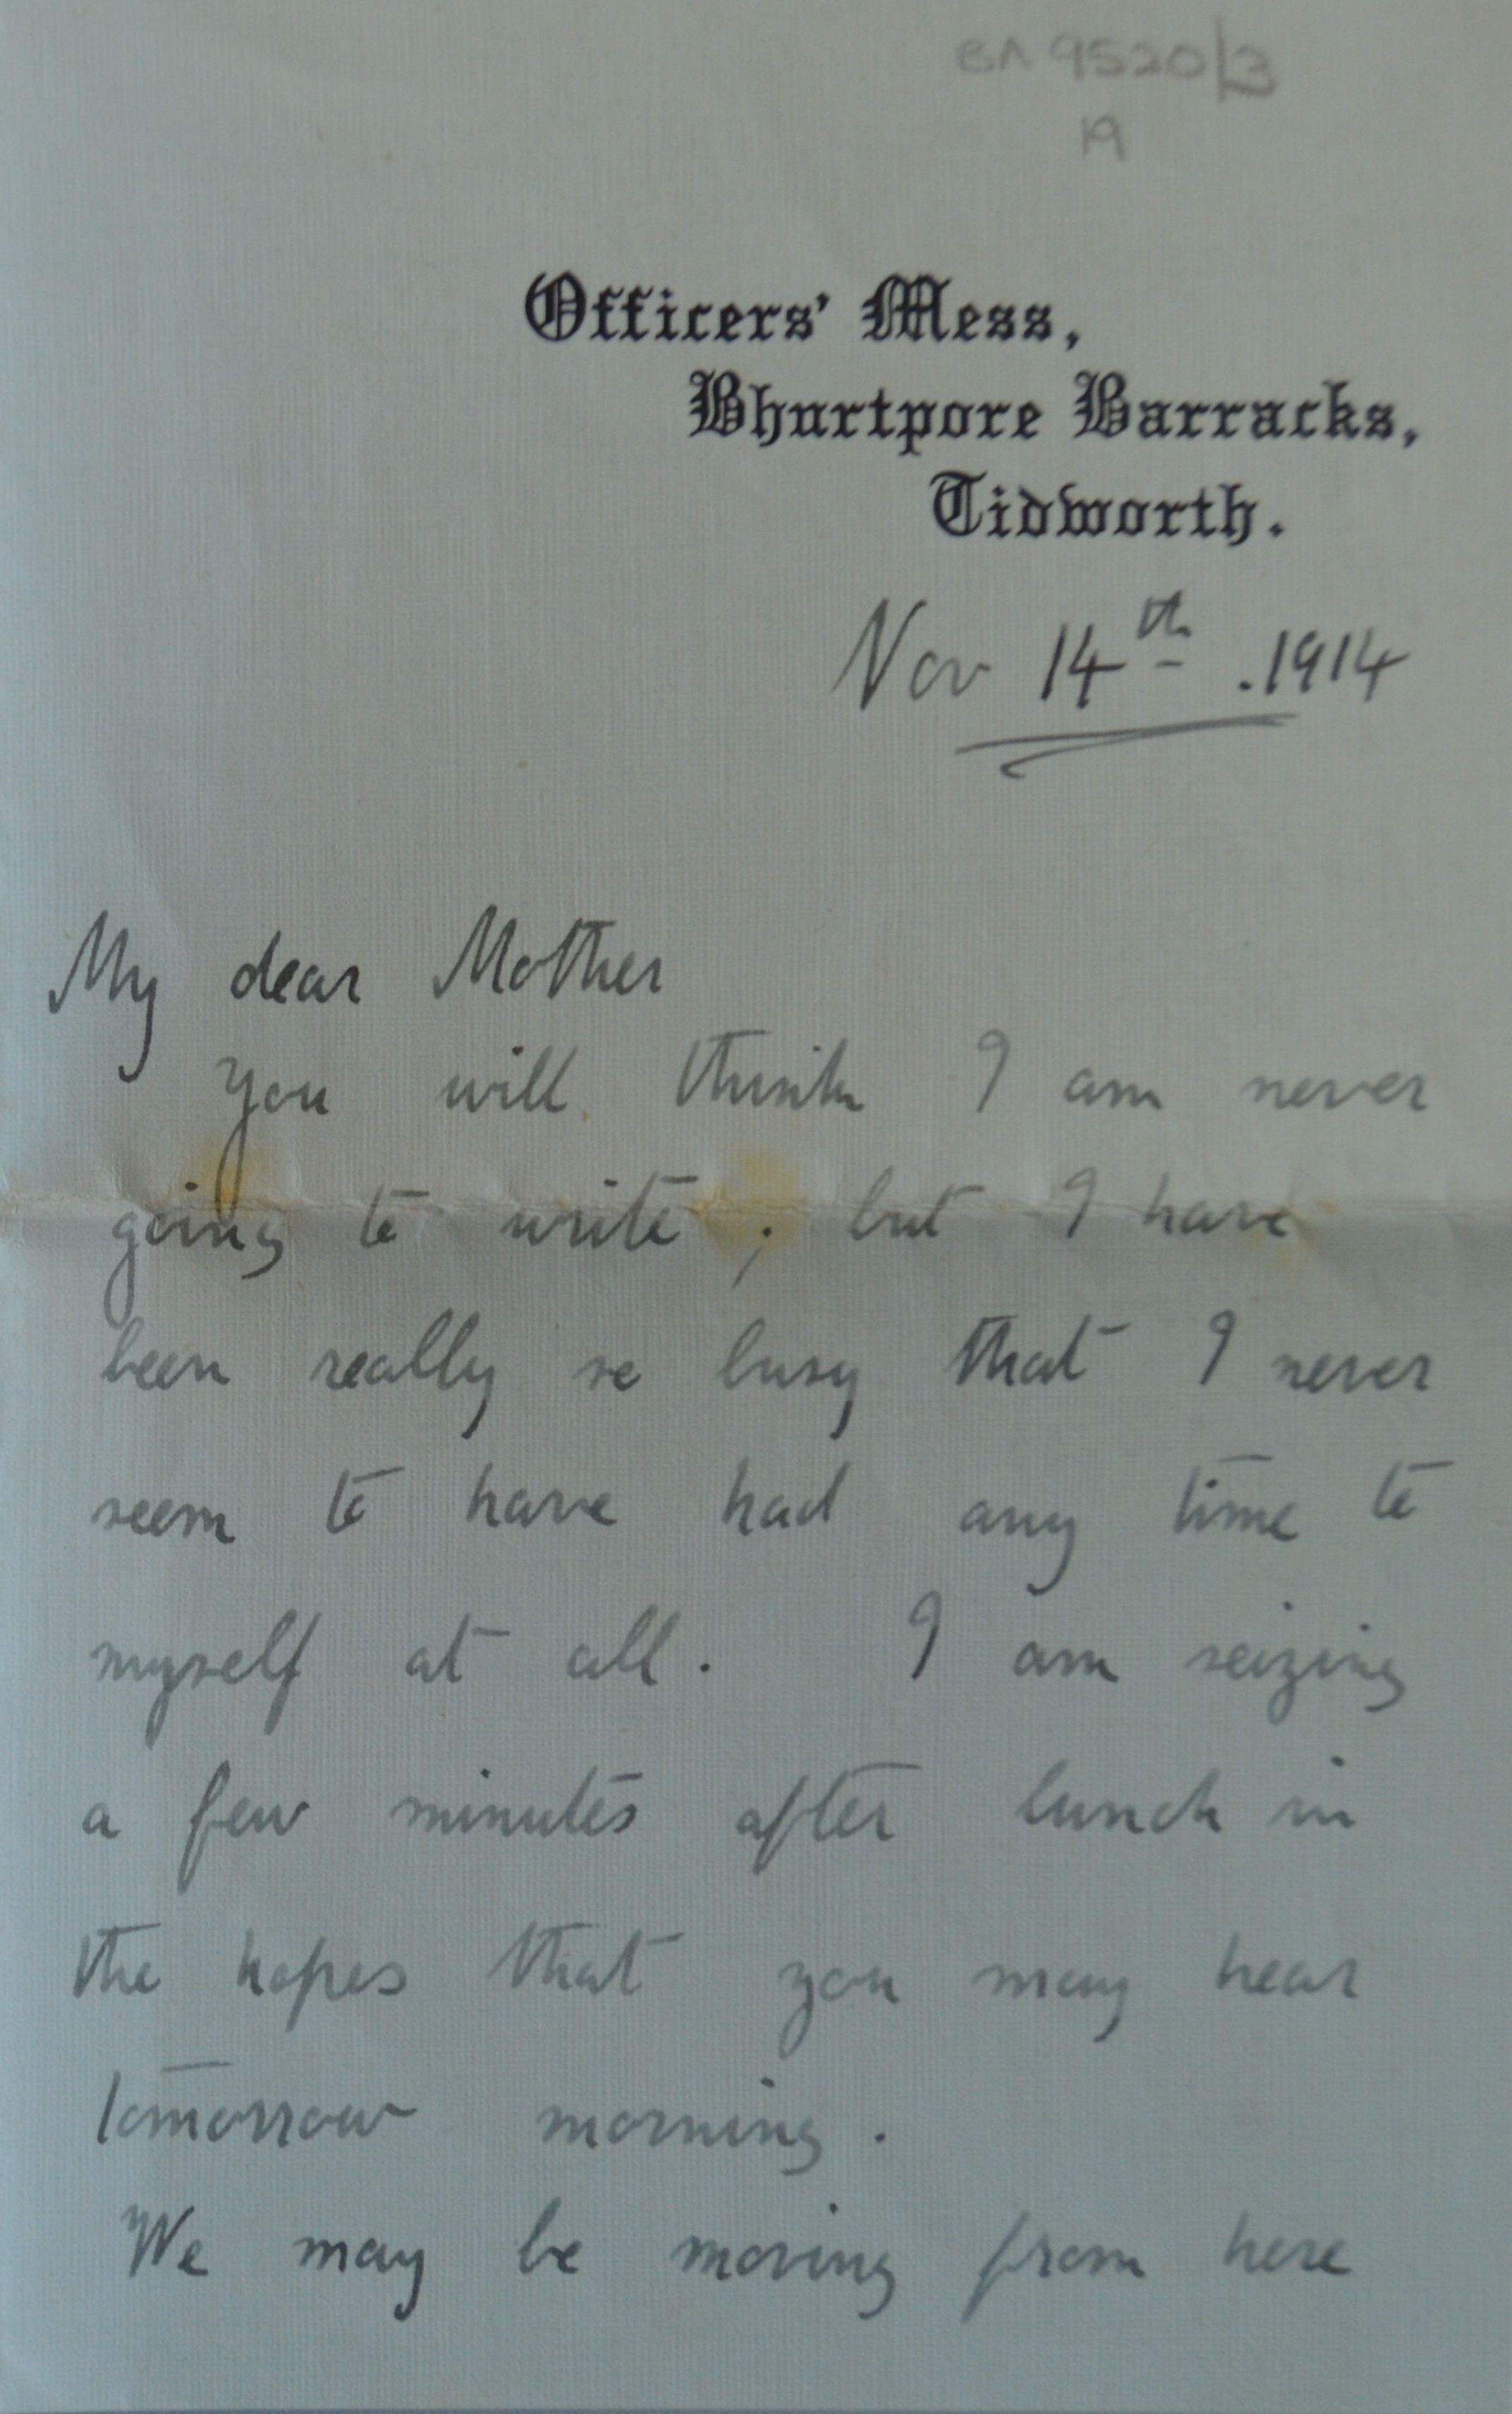 en 9520/3
19
Officers' Mess,
Bhurtpore Barracks,
Tidworth.
Nov 14th .1914
My dear Mother
You will think I am never
going to write ; but I have
been really so busy that I never
seem to have had any time to
myself at all. I am seizing
a few minutes after lunch in
the hopes that you may hear
tomorrow morning.
We may be moving from here